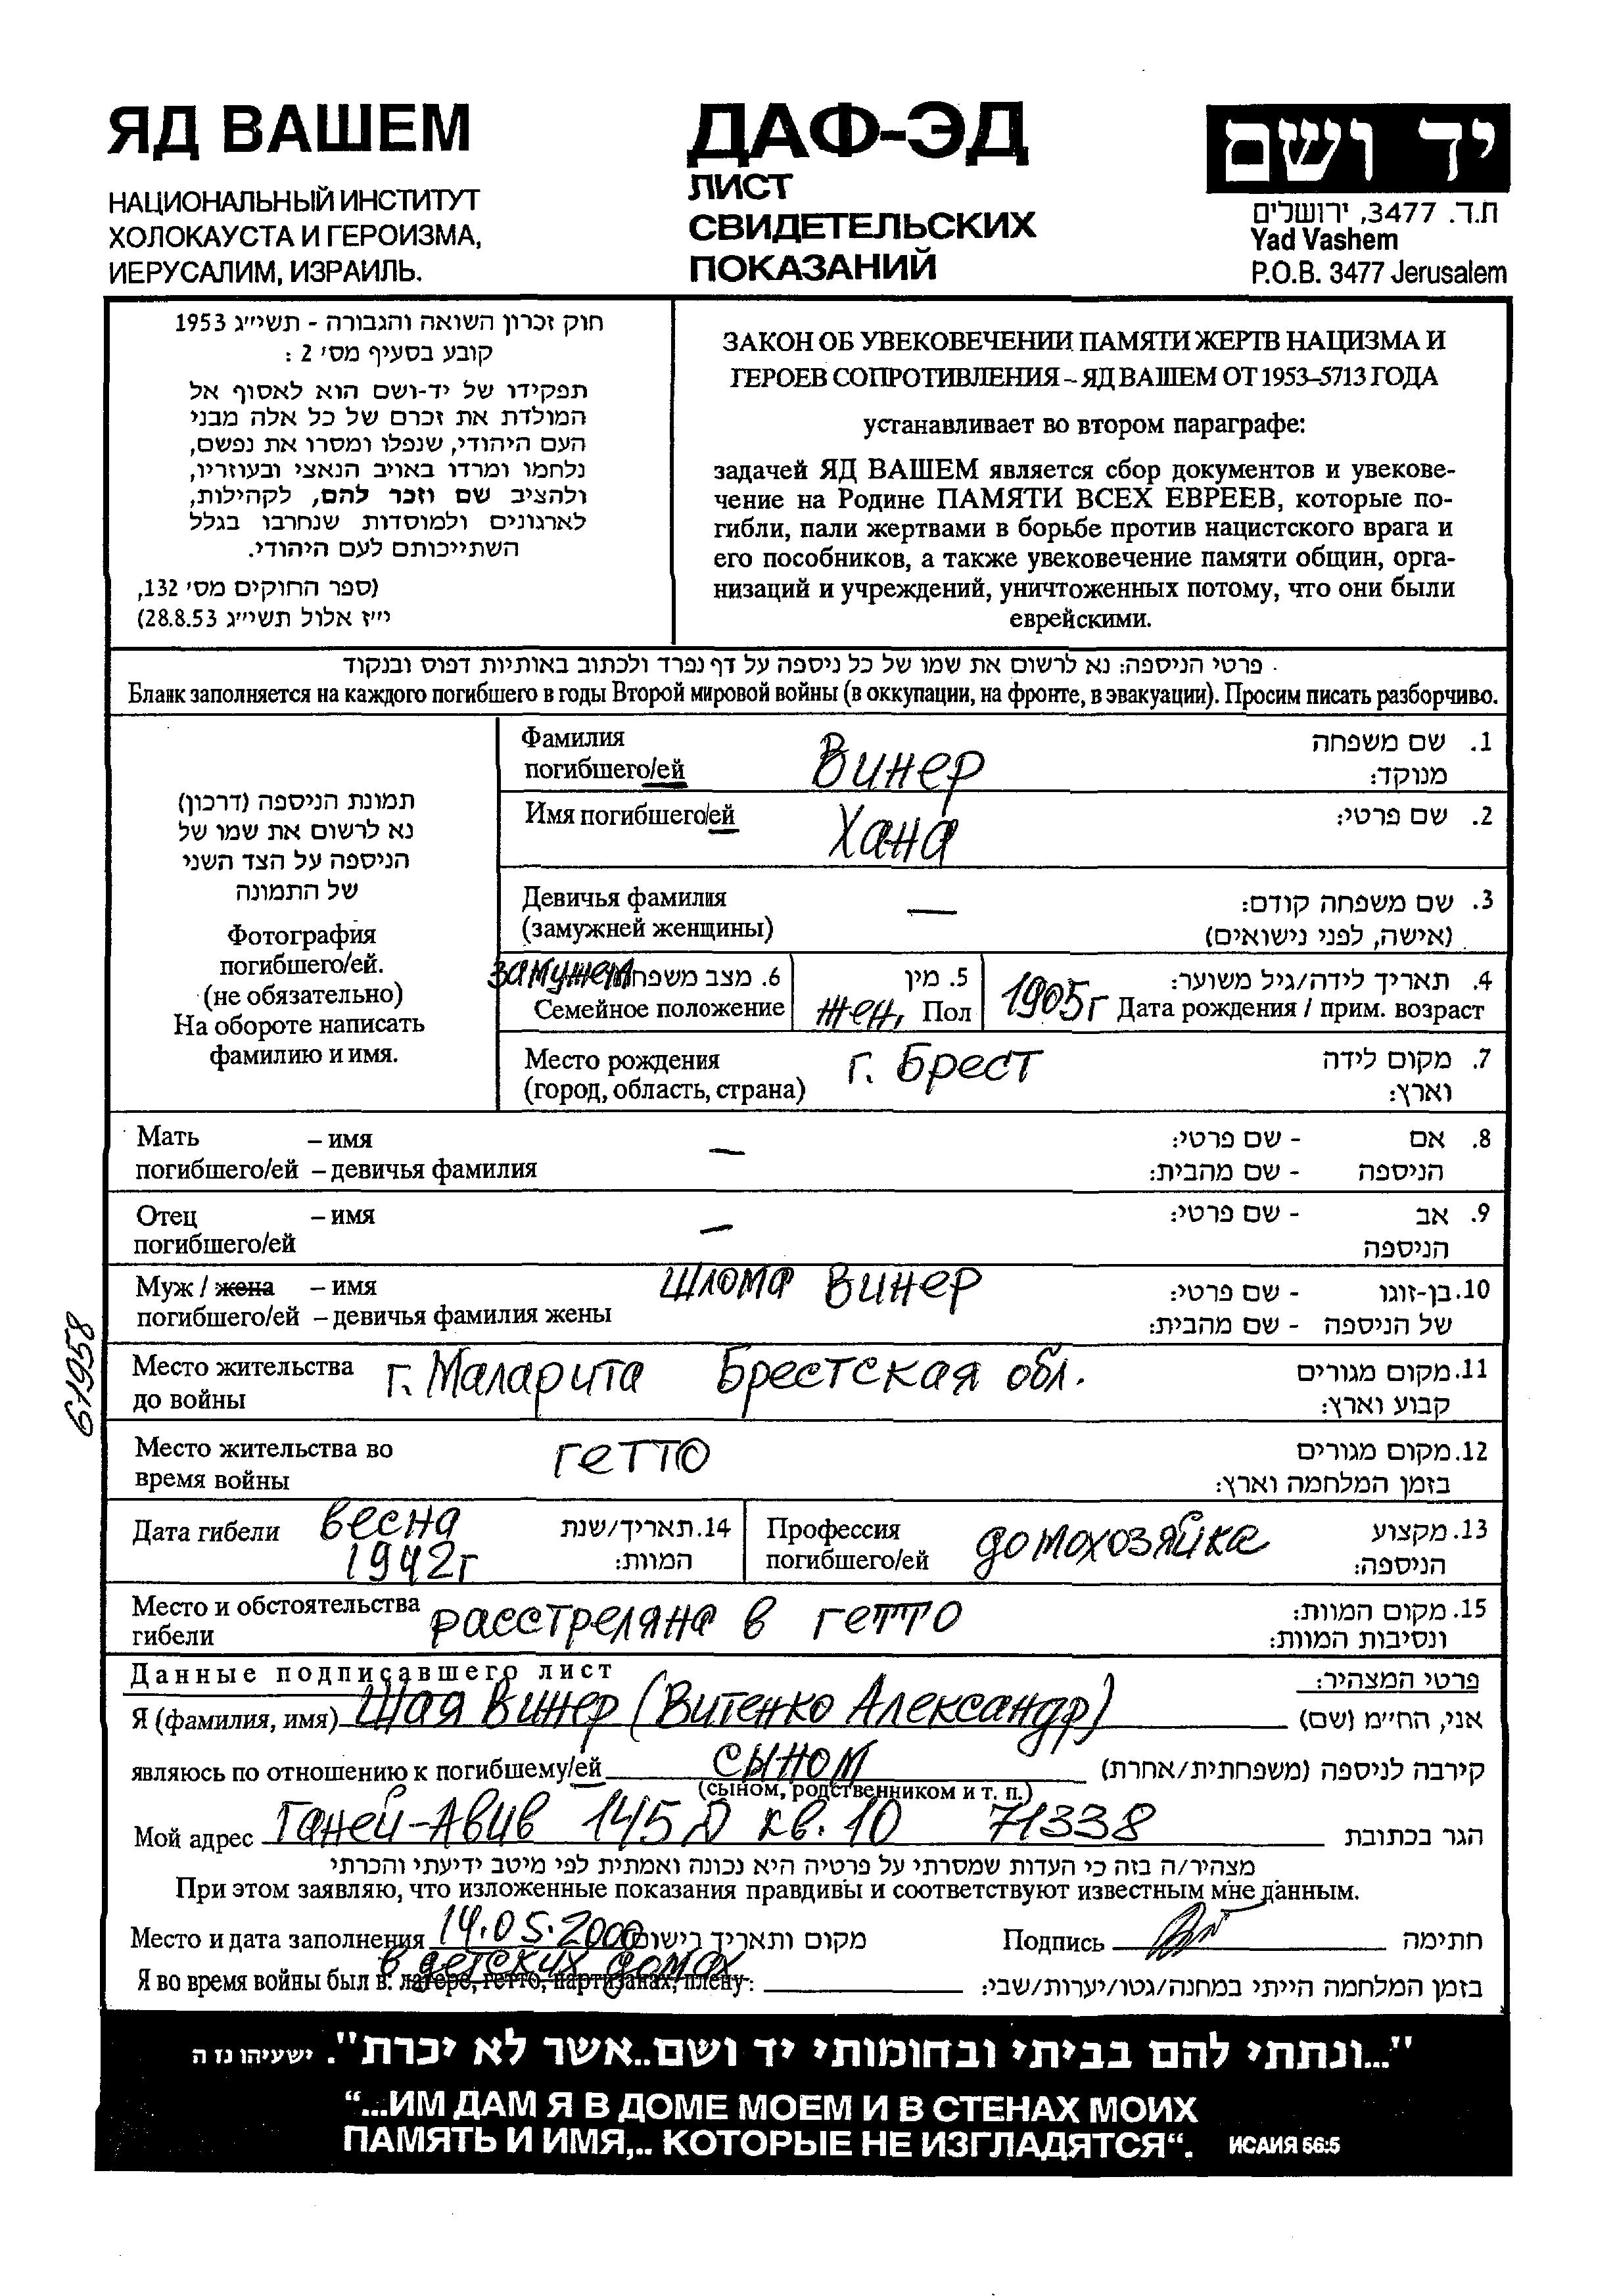 ЯД ВАШЕМ
НАЦИОНАЛЬНЫЙ ИНСТИТУТ
ХОЛОКАУСТА И ГЕРОИЗМА,
ИЕРУСАЛИМ, ИЗРАИЛЬ.
ДАФ-ЭД
ЛИСТ
СВИДЕТЕЛЬСКИХ
ПОКАЗАНИЙ
יד ושם
ת.ד. 3477, ירושלים
Yad Vashem
P.O.B. 3477 Jerusalem
חוק זכרון השואה והגבורה - תשי״ג 1953
קובע בסעיף מס׳ 2 :
תפקידו של יד-ושם הוא לאסוף אל
המולדת את זכרם של כל אלה מבני
העם היהודי, שנפלו ומסרו את נפשם,
נלחמו ומרדו באויב הנאצי ובעוזריו,
ולהציב שם וזכר להם, לקהילות,
לארגונים ולמוסדות שנחרבו בגלל
השתייכותם לעם היהודי.
(ספר החוקים מס׳ 132,
י״ז אלול תשי״ג 28.8.53)
ЗАКОН ОБ УВЕКОВЕЧЕНИИ ПАМЯТИ ЖЕРТВ НАЦИЗМА И
ГЕРОЕВ СОПРОТИВЛЕНИЯ – ЯД ВАШЕМ ОТ 1953–5713 ГОДА
устанавливает во втором параграфе:
задачей ЯД ВАШЕМ является сбор документов и увекове-
чение на Родине ПАМЯТИ ВСЕХ ЕВРЕЕВ, которые по-
гибли, пали жертвами в борьбе против нацистского врага и
его пособников, а также увековечение памяти общин, орга-
низаций и учреждений, уничтоженных потому, что они были
еврейскими.
פרטי הניספה: נא לרשום את שמו של כל ניספה על דף נפרד ולכתוב באותיות דפוס ובנקוד
Бланк заполняется на каждого погибшего в годы Второй мировой войны (в оккупации, на фронте, в эвакуации). Просим писать разборчиво.
תמונת הניספה (דרכון)
נא לרשום את שמו של
הניספה על הצד השני
של התמונה
Фотография
погибшего/ей.
(не обязательно)
На обороте написать
фамилию и имя.
Фамилия 1. שם משפחה
погибшего/ей Винер מנוקד:
Имя погибшего/ей Хана 2. שם פרטי:
Девичья фамилия — 3. שם משפחה קודם:
(замужней женщины) (אישה, לפני נישואים)
замужем 6. מצב משפחתי 5. מין 4. תאריך לידה/גיל משוער:
Семейное положение жен, Пол 1905г Дата рождения / прим. возраст
Место рождения г. Брест 7. מקום לידה
(город, область, страна) וארץ:
Мать – имя — 8. אם - שם פרטי:
погибшего/ей – девичья фамилия הניספה - שם מהבית:
Отец – имя — 9. אב - שם פרטי:
погибшего/ей הניספה
Муж / жена – имя Шлома Винер 10. בן-זוגו - שם פרטי:
погибшего/ей – девичья фамилия жены של הניספה - שם מהבית:
61958
Место жительства г. Маларита Брестская обл. 11. מקום מגורים
до войны קבוע וארץ:
Место жительства во гетто 12. מקום מגורים
время войны בזמן המלחמה וארץ:
Дата гибели весна 14. תאריך/שנת
1942г המוות:
Профессия домохозяйка 13. מקצוע
погибшего/ей הניספה:
Место и обстоятельства расстреляна в гетто 15. מקום המוות:
гибели ונסיבות המוות:
Данные подписавшего лист פרטי המצהיר:
Я (фамилия, имя) Шая Винер (Витенко Александр) אני, הח״מ (שם)
являюсь по отношению к погибшему/ей сыном קירבה לניספה (משפחתית/אחרת)
(сыном, родственником и т. п.)
Мой адрес Ганей-Авив 145 кв. 10 71338 הגר בכתובת
מצהיר/ה בזה כי העדות שמסרתי על פרטיה היא נכונה ואמתית לפי מיטב ידיעתי והכרתי
При этом заявляю, что изложенные показания правдивы и соответствуют известным мне данным.
Место и дата заполнения 14.05.2000 מקום ותאריך רישום Подпись חתימה
в детских домах
Я во время войны был в: лагере, гетто, партизанах, плену: בזמן המלחמה הייתי במחנה/גטו/יערות/שבי:
"...ונתתי להם בביתי ובחומותי יד ושם..אשר לא יכרת". ישעיהו נז ה
“...ИМ ДАМ Я В ДОМЕ МОЕМ И В СТЕНАХ МОИХ
ПАМЯТЬ И ИМЯ,.. КОТОРЫЕ НЕ ИЗГЛАДЯТСЯ“. ИСАИЯ 56:5